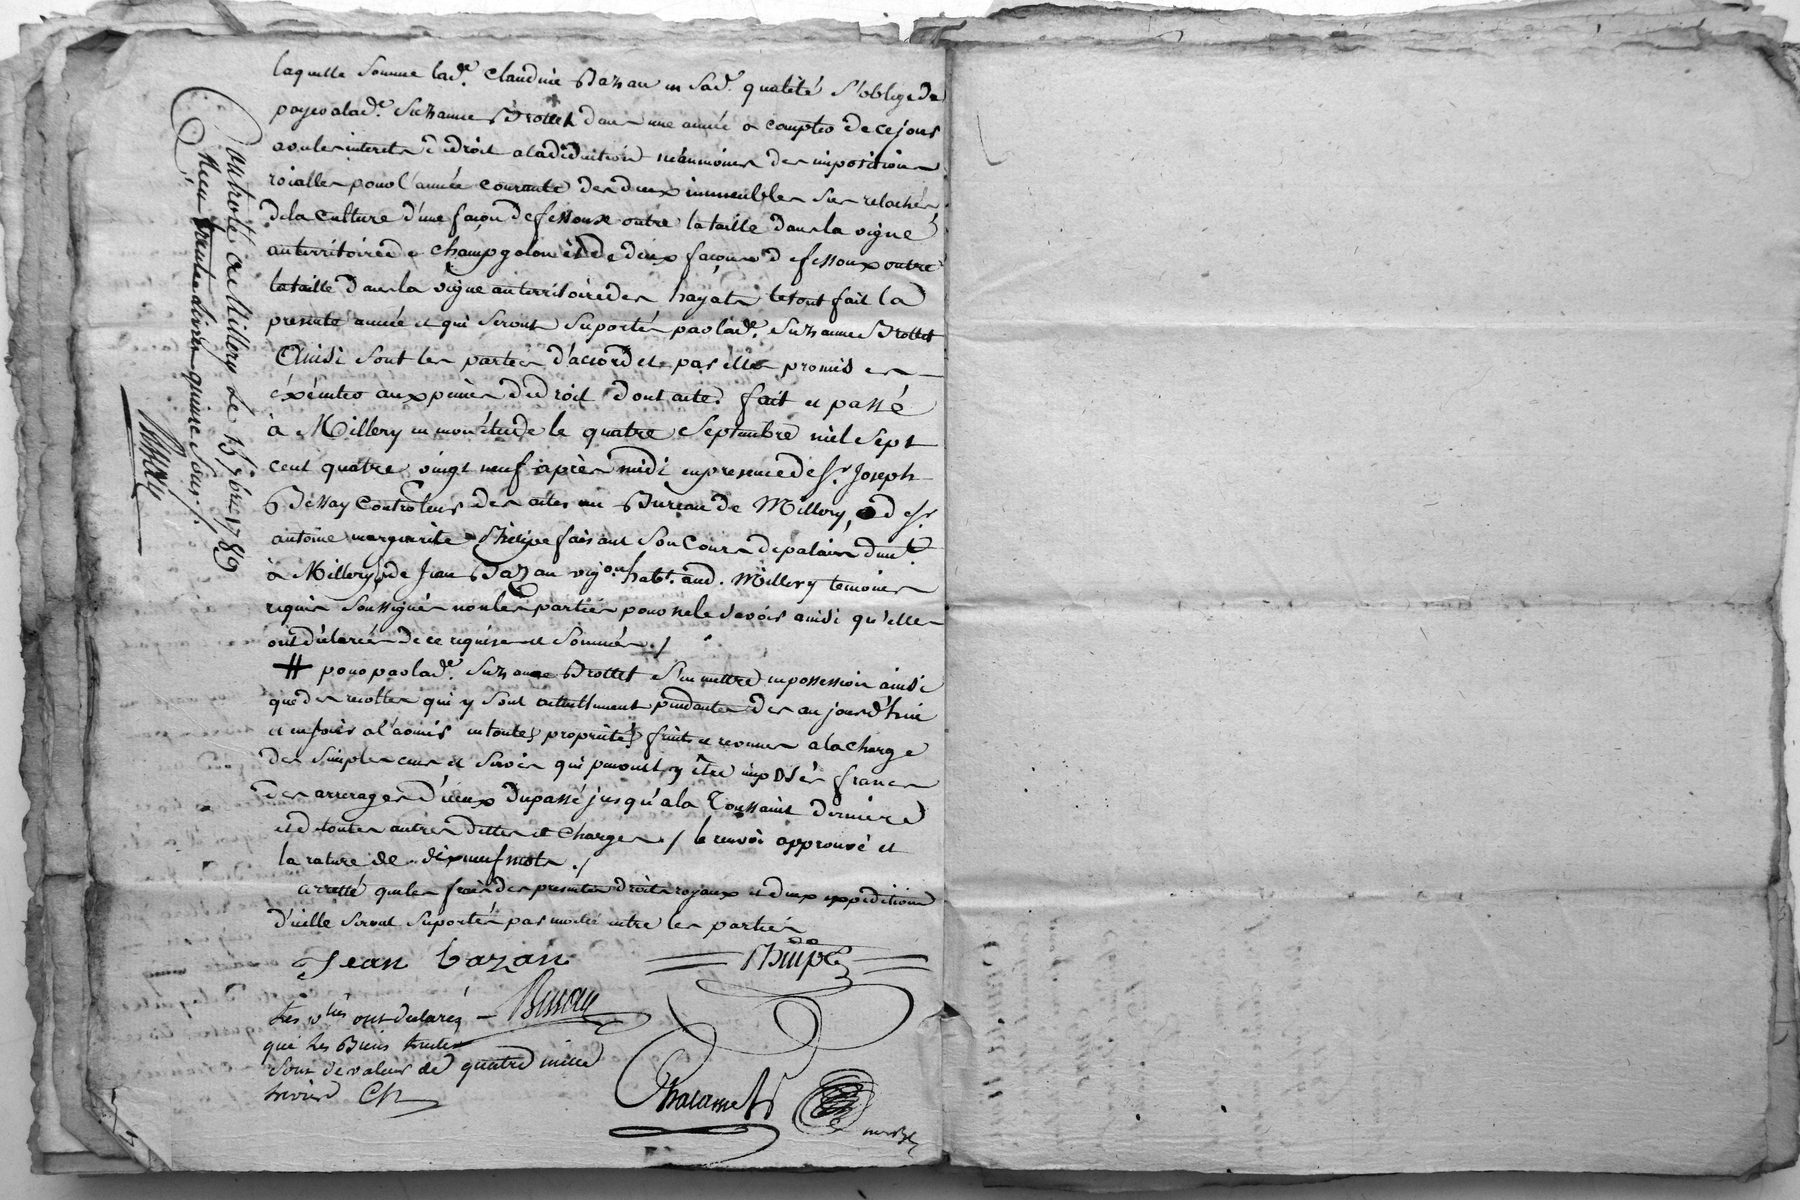 laquelle somme lad.e Claudine Bazan en sad. qualité s'oblige de
payer a lad.e Suzanne Brottet dans une année a compter de ce jour
avec les interets de droit a la déduition néanmoins des impositions
roialles pour l'année courante des deux immeubles sus relachés
de la culture d'une façon de fessoux outre la taille dans la vigne
au territoire de Champgolon et de deux façons de fessoux outre
la taille dans la vigne au territoire des hayats le tout fait la
presente année et qui seront suportés par lad.e Suzanne Brottet
Ainsi sont les parties d'accord et par elles promis es
éxécuter aux peines de droit dont acte. fait et passé
à Millery en mon étude le quatre Septembre mil sept
cent quatre vingt neuf après midi en presence de sr. Joseph
Bessay Controleur des actes au Bureau de Millery, de sr
antoine marguerite Phelipe faisant son cours de palais dem.t
à Millery, de Jean Bazan vig.on hab.t aud. Millery temoins
requis soussignés non les parties pour ne le savoir ainsi qu'elles
ont déclarées de ce requises et sommées ./
# pour par lad.e Suzanne Brottet s'en mettre en possession ainsi
que des recoltes qui y sont actuellement pendantes des aujourd'hui
et en jouir a l'avenir en toutes propriétés fruits et revenus a la charge
des simples cens et servis qui peuvent y être imposés francs
des arrerages d'iceux du passé jusqu'a la Toussaint derniere
et de toutes autres dettes et charges ./ le renvoi approuvé et
la rature de dix neuf mots ./
arretté que les frais des presentes droits royaux et deux expeditions
d'icelle seront suportés par moitié entre les parties
Jean bazan
Phelipe
Les p.ties ont declaréz Bessay
que les Biens traités
sont de valeur de quatre mille
livres Ch
Chacasset
Controllé a Millery le 15 7bre 1789
Recu trente livres quinze sous ./.
Bessay